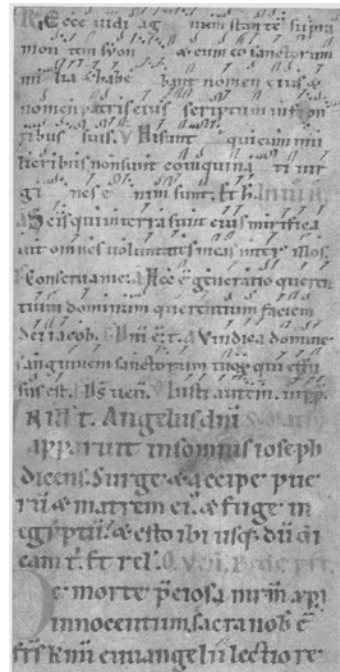 R Ecce uidi ag num stante supra
mon tem syon & cum eo sanctorum
mi lia & habe bant nomen eius &
nomen patris eius scriptum in fron
tibus suis. V Hi sunt qui cum mu
lieribus non sunt coinquina ti uir
gi nes e nim sunt. Et h̄. In iii. N̄.
a Sc̄is qui in terra sunt eius mirifica
uit omnes uoluntates meas inter illos.
Conserua me. a Hec ē generatio queren
tium dominum querentium faciem
dei iacob. D̄ni ē t̄. a Vindica domine
sanguinem sanctorum tuoꝝ qui effu
sus est. D̄s uen̄. V Iusti autem. in pp̄.
In ill t̄. Angelus dn̄i
apparuit in somnis ioseph
dicens. Surge & accipe pue
rū & matrem ei᷒. & fuge in
egyptū. & esto ibi usq; dū di
cam t̄. Et rel̄. O. Ven̄. Bede pr̄i.
De morte p̄ciosa mr̄m xp̄i
innocentum. sacra nob̄ ē
fr̄s k̄mi euuangelii lectio re